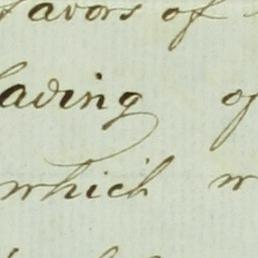 favors of
lading of
which w